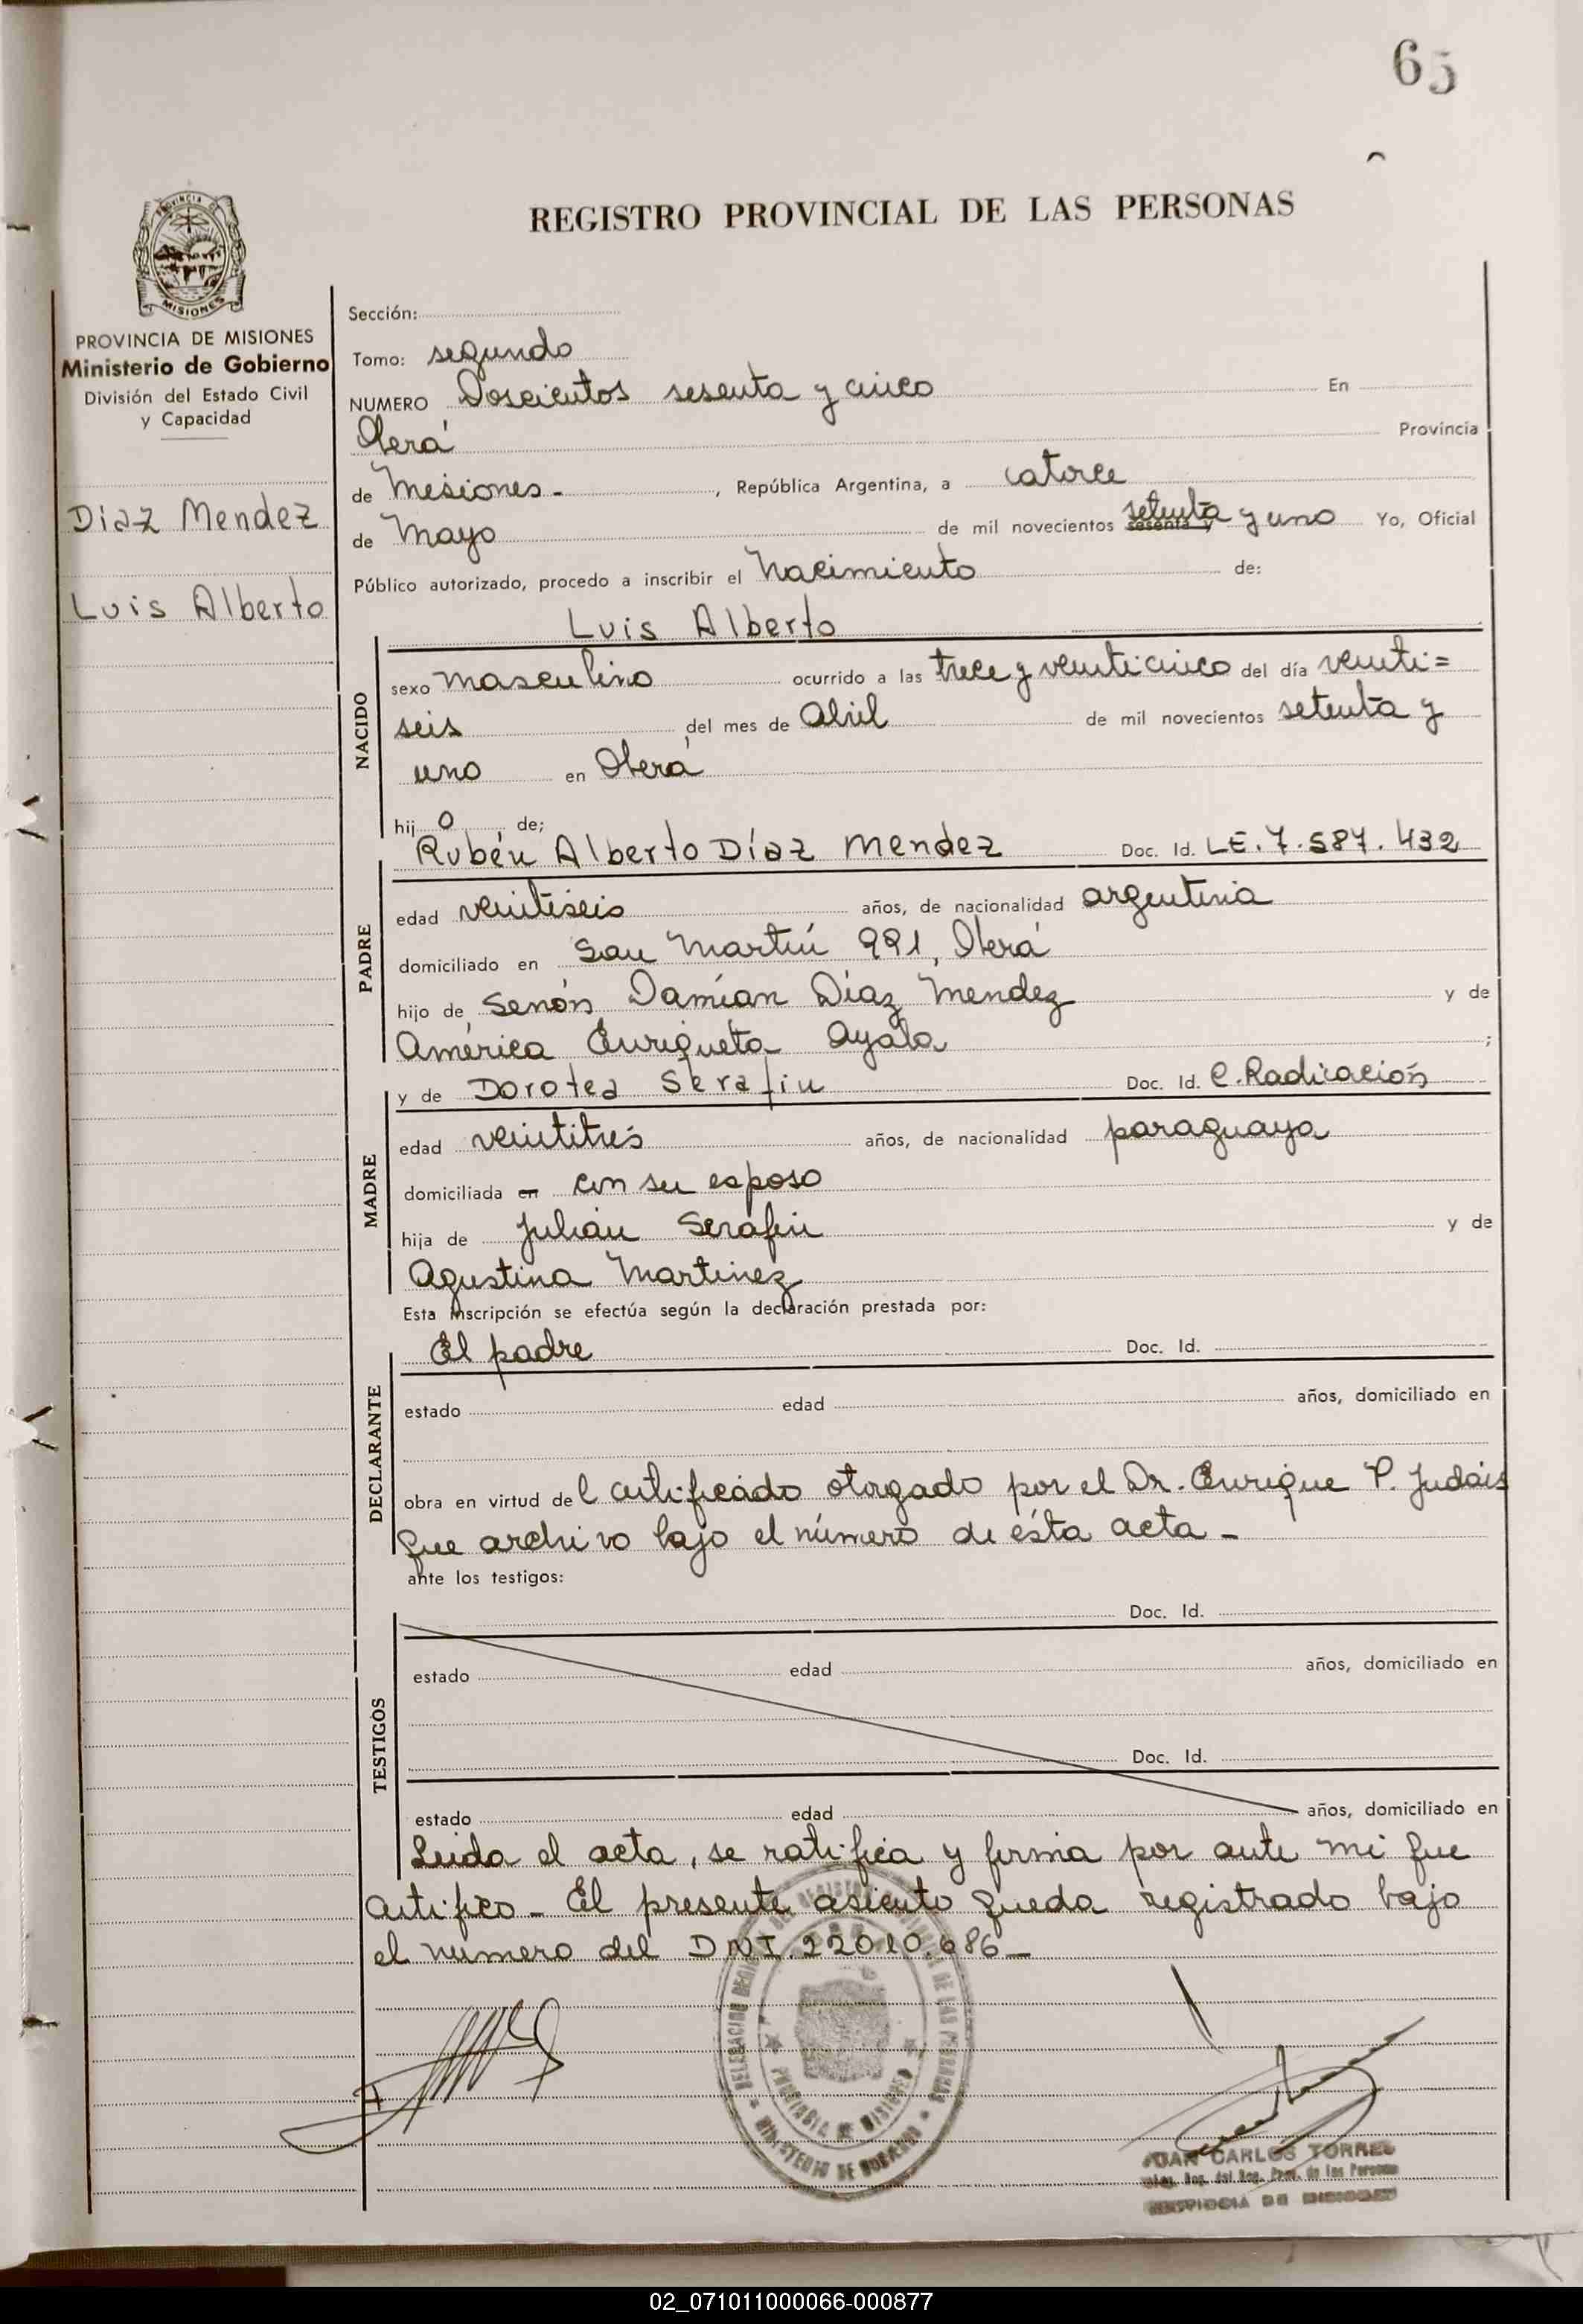 65
REGISTRO PROVINCIAL DE LAS PERSONAS
PROVINCIA DE
MISIONES
PROVINCIA DE MISIONES
Ministerio de Gobierno
División del Estado Civil
y Capacidad
Diaz Mendez
Luis Alberto
Sección:
Tomo: segundo
NUMERO Doscientos sesenta y cinco En
Oberá Provincia
de Misiones - , República Argentina, a catorce
de Mayo de mil novecientos sesenta y setenta y uno Yo, Oficial
Público autorizado, procedo a inscribir el Nacimiento de:
Luis Alberto
NACIDO
sexo masculino ocurrido a las trece y veinticinco del día veinti=
seis del mes de Abril de mil novecientos setenta y
uno en Oberá
hij o de;
Rubén Alberto Díaz Mendez Doc. Id. LE. 7.587.432
PADRE
edad veintiséis años, de nacionalidad argentina
domiciliado en San Martín 991, Oberá
hijo de Senón Damían Díaz Mendez y de
América Enriqueta Ayala ;
y de Dorotea Serafin Doc. Id. C. Radicación
MADRE
edad veintitrés años, de nacionalidad paraguaya
domiciliada en con su esposo
hija de Julián Serafin y de
Agustina Martinez
Esta inscripción se efectúa según la declaración prestada por:
El padre Doc. Id.
DECLARANTE
estado edad años, domiciliado en
obra en virtud del certificado otorgado por el Dr. Enrique P. Judais
que archivo bajo el número de ésta acta -
ante los testigos:
Doc. Id.
TESTIGOS
estado edad años, domiciliado en
Doc. Id.
estado edad años, domiciliado en
Leida el acta, se ratifica y firma por ante mi que
certifico - El presente asiento queda registrado bajo
el numero del DNI. 22010.686 -
PROVINCIA DE MISIONES
MINISTERIO DE GOBIERNO
JUAN CARLOS TORRES
Reg. del Reg. Prov. de las Personas
PROVINCIA DE MISIONES
02_071011000066-000877